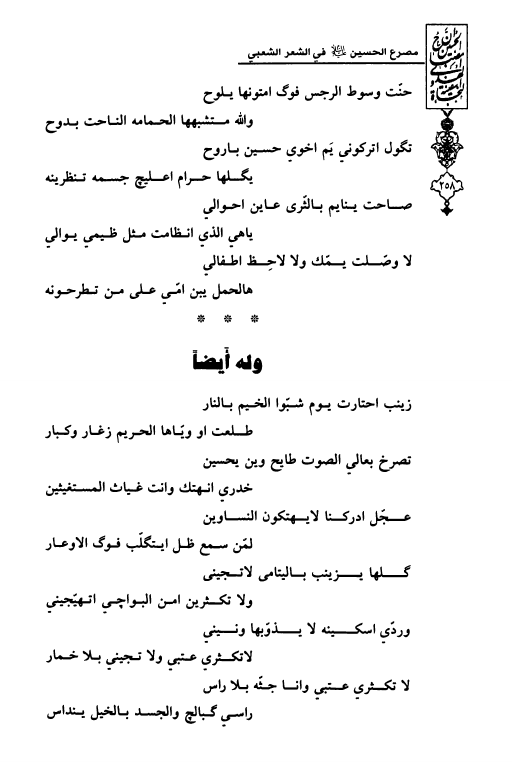 مصرع الحسين في الشعر الشعبي
٢٥٨
حنّت وسوط الرجس فوگ امتونها يـلوح
والله مـتشبهها الحـمامه النـاحت بـدوح
تگول اتركوني يَم اخوي حسين بـاروح
يگـلها حـرام اعليچ جسـمه تـنظرينه
صـاحت يـنايم بـالثّرى عـاين احـوالي
ياهي الذي انـظامت مـثل ظـيمي يـوالي
لا وصّـلت يـمّك ولا لاحـظ اطـفالي
هالحمل يبن امّـي عـلى مـن تـطرحـونه
* * *
وله أيضاً
زينب احتارت يـوم شـبّوا الخـيم بـالنار
طـلعت او ويّـاها الحريم زغـار وكـبار
تصرخ بعالي الصوت طايح وين يحسين
خدري انـهتك وانت غـياث المسـتغيثين
عـجّل ادركـنا لايـهتكون النسـاوين
لمّن سـمع ظـل ايـتگلّب فـوگ الاوعـار
گـلها يـزينب بـاليتامى لاتـجيني
ولا تكـثرين امـن البـواچـي اتـهيّجيني
وردّي اسكـينه لا يـذوّبها ونـيني
لاتكـثري عـتبي ولا تـجيني بـلا خـمار
لا تكـثري عـتبي وانـا جـثّه بـلا راس
راسـي گـبالچ والجسـد بـالخيل يـنداس